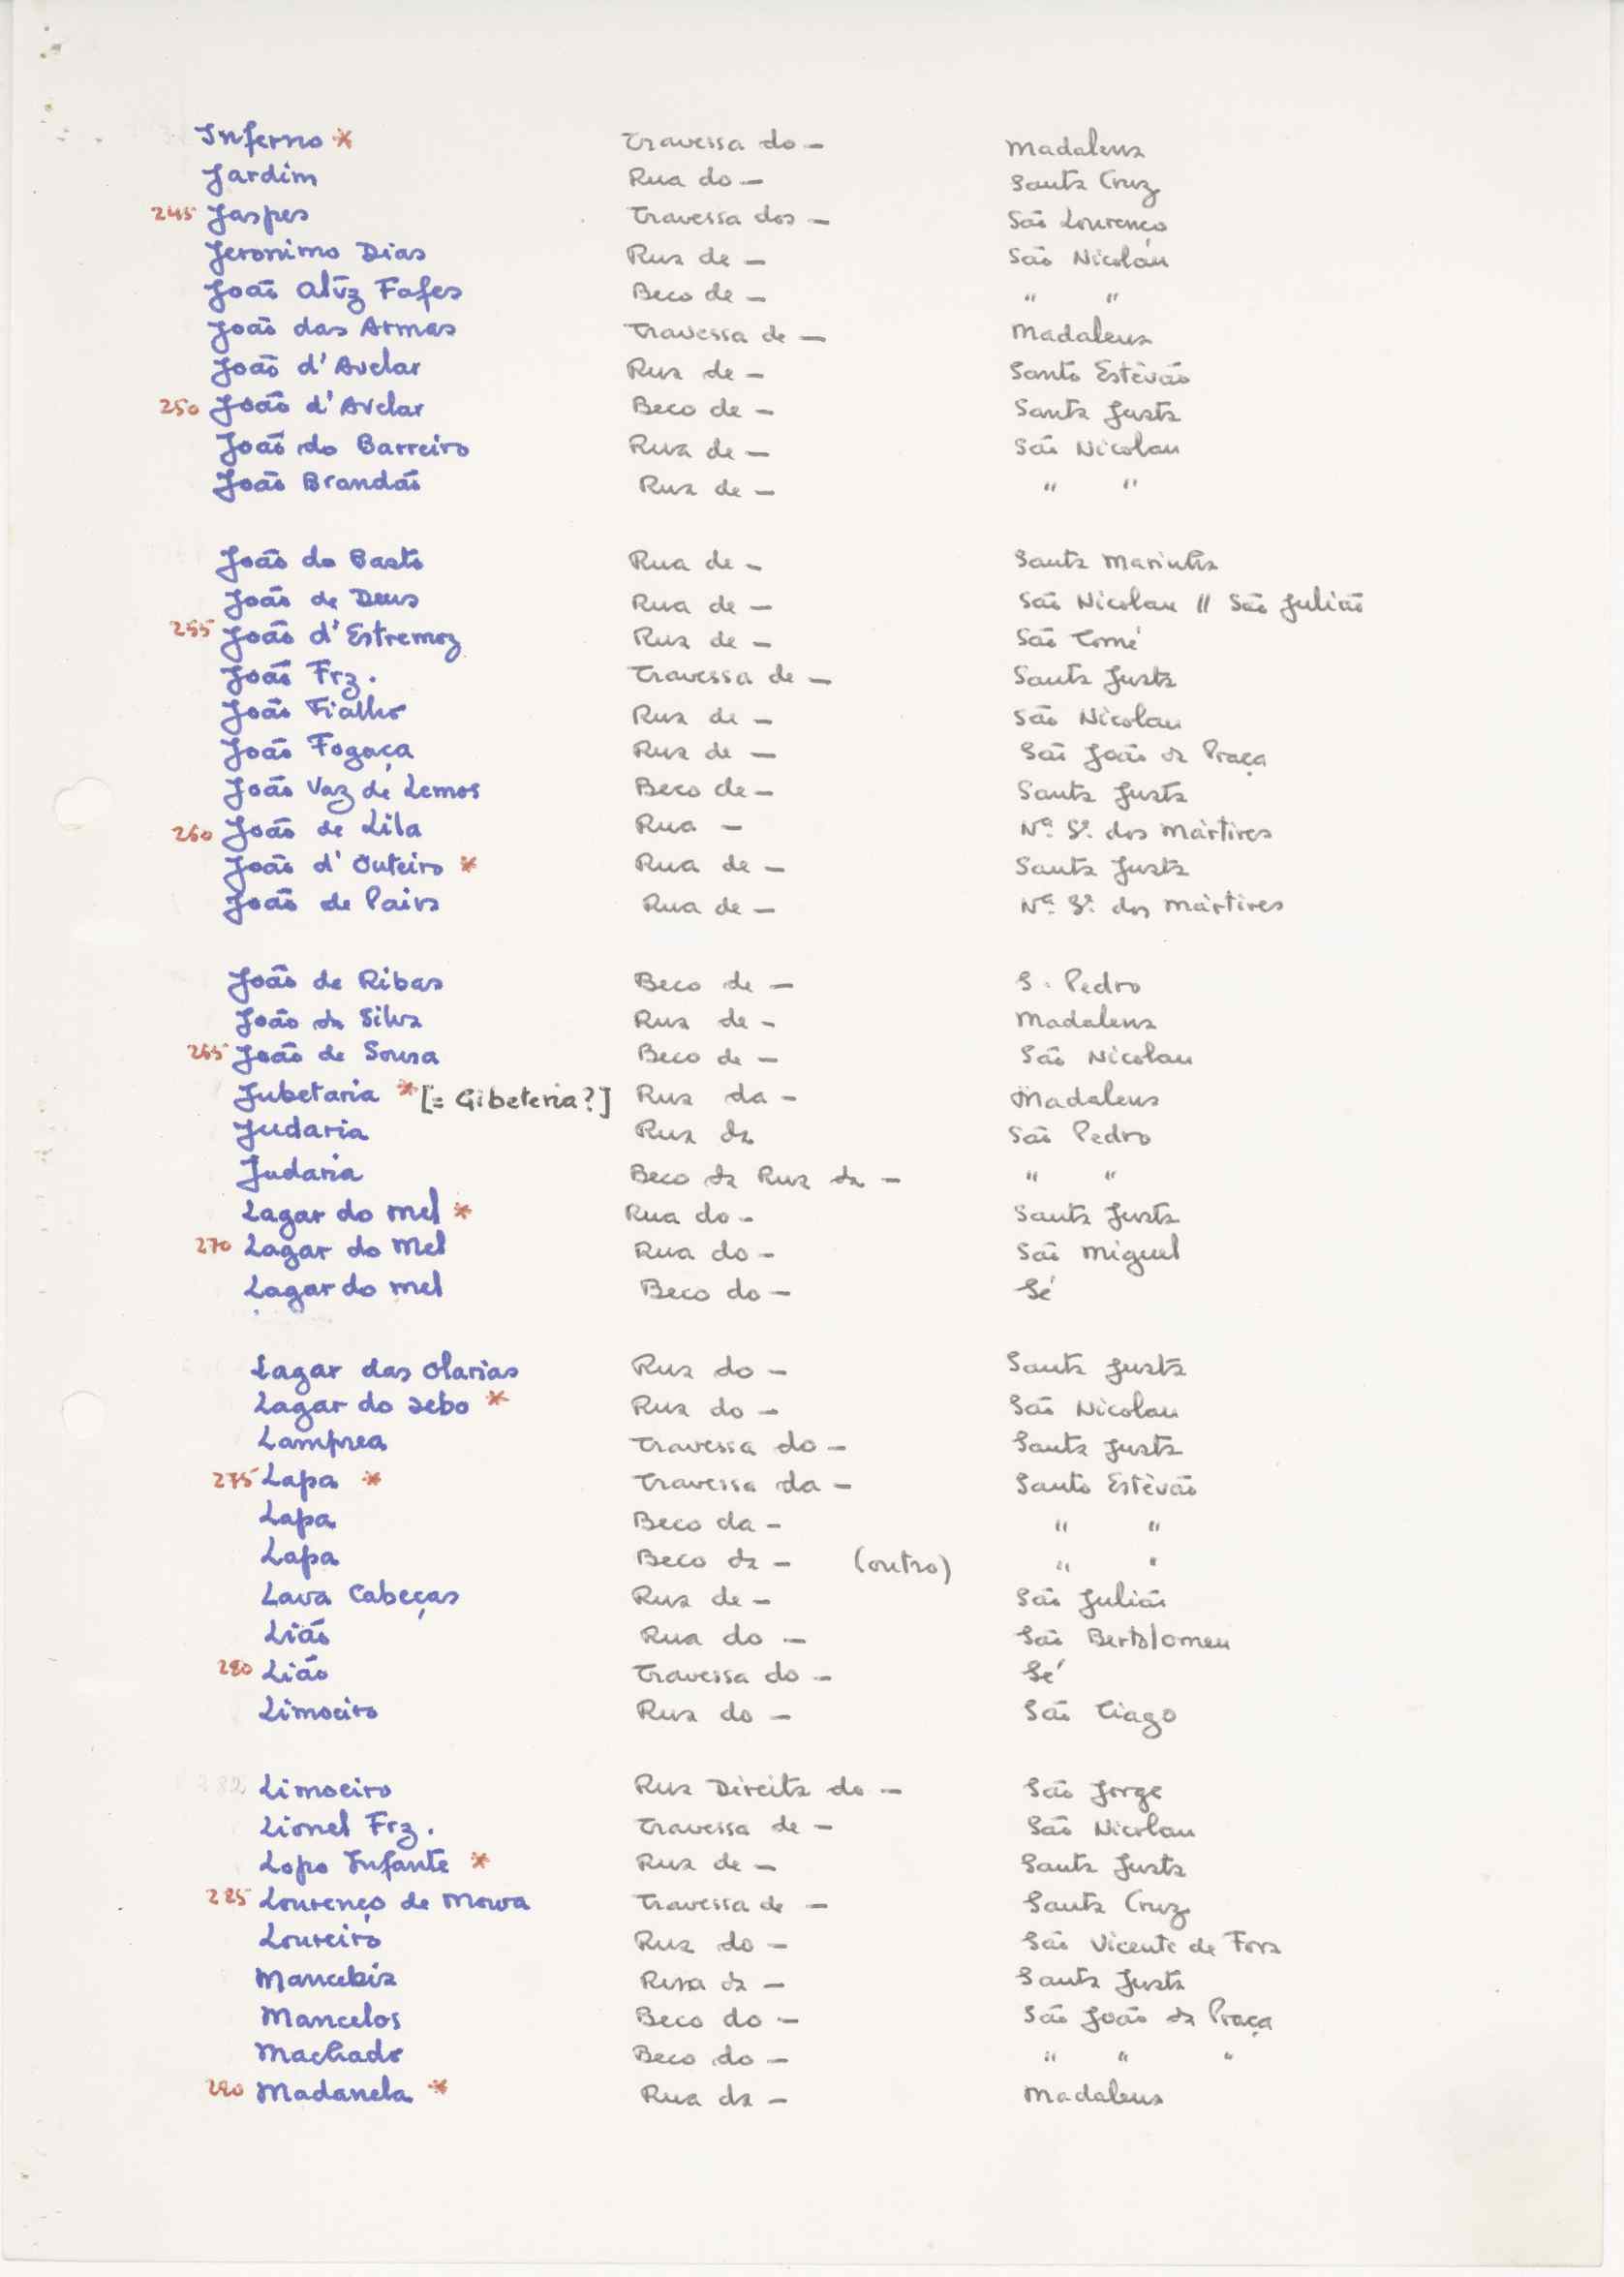 Inferno * Travessa do – Madalena
Jardim Rua do – Santa Cruz
245 Jaspes Travessa dos – São Lourenço
Jeronimo Dias Rua de – São Nicolau
João alvz Fafes Beco de – " "
João das Armas Travessa de – Madalena
João d'Avelar Rua de – Santo Estêvão
250 João d'Avelar Beco de – Santa Justa
João do Barreiro Rua de – São Nicolau
João Brandão Rua de – " "
João do Basto Rua de – Santa Marinha
João de Deus Rua de – São Nicolau // São Julião
255 João d'Estremoz Rua de – São Tomé
João Frz. Travessa de – Santa Justa
João Fialho Rua de – São Nicolau
João Fogaça Rua de – São João da Praça
João Vaz de Lemos Beco de – Santa Justa
260 João de Lila Rua – Nª Sª dos Mártires
João d'Outeiro * Rua de – Santa Justa
João de Paiva Rua de – Nª Sª dos Mártires
João de Ribas Beco de – S. Pedro
João da Silva Rua de – Madalena
265 João de Sousa Beco de – São Nicolau
Jubetaria * [= Gibeteria?] Rua da – Madalena
Judaria Rua da São Pedro
Judaria Beco da Rua da – " "
Lagar do mel * Rua do – Santa Justa
270 Lagar do Mel Rua do – São Miguel
Lagar do mel Beco do – Sé
Lagar das Olarias Rua do – Santa Justa
Lagar do sebo * Rua do – São Nicolau
Lamprea Travessa do – Santa Justa
275 Lapa * Travessa da – Santo Estêvão
Lapa Beco da – " "
Lapa Beco da – (outro) " "
Lava Cabeças Rua de – São Julião
Lião Rua do – São Bertolomeu
280 Lião Travessa do – Sé
Limoeiro Rua do – São Tiago
282 Limoeiro Rua Direita do – São Jorge
Lionel Frz. Travessa de – São Nicolau
Lopo Infante * Rua de – Santa Justa
285 Lourenço de Moura Travessa de – Santa Cruz
Loureiro Rua do – São Vicente de Fora
Mancebia Rua da – Santa Justa
Mancelos Beco do – São João da Praça
Machado Beco do – " " "
290 Madanela * Rua da – Madalena